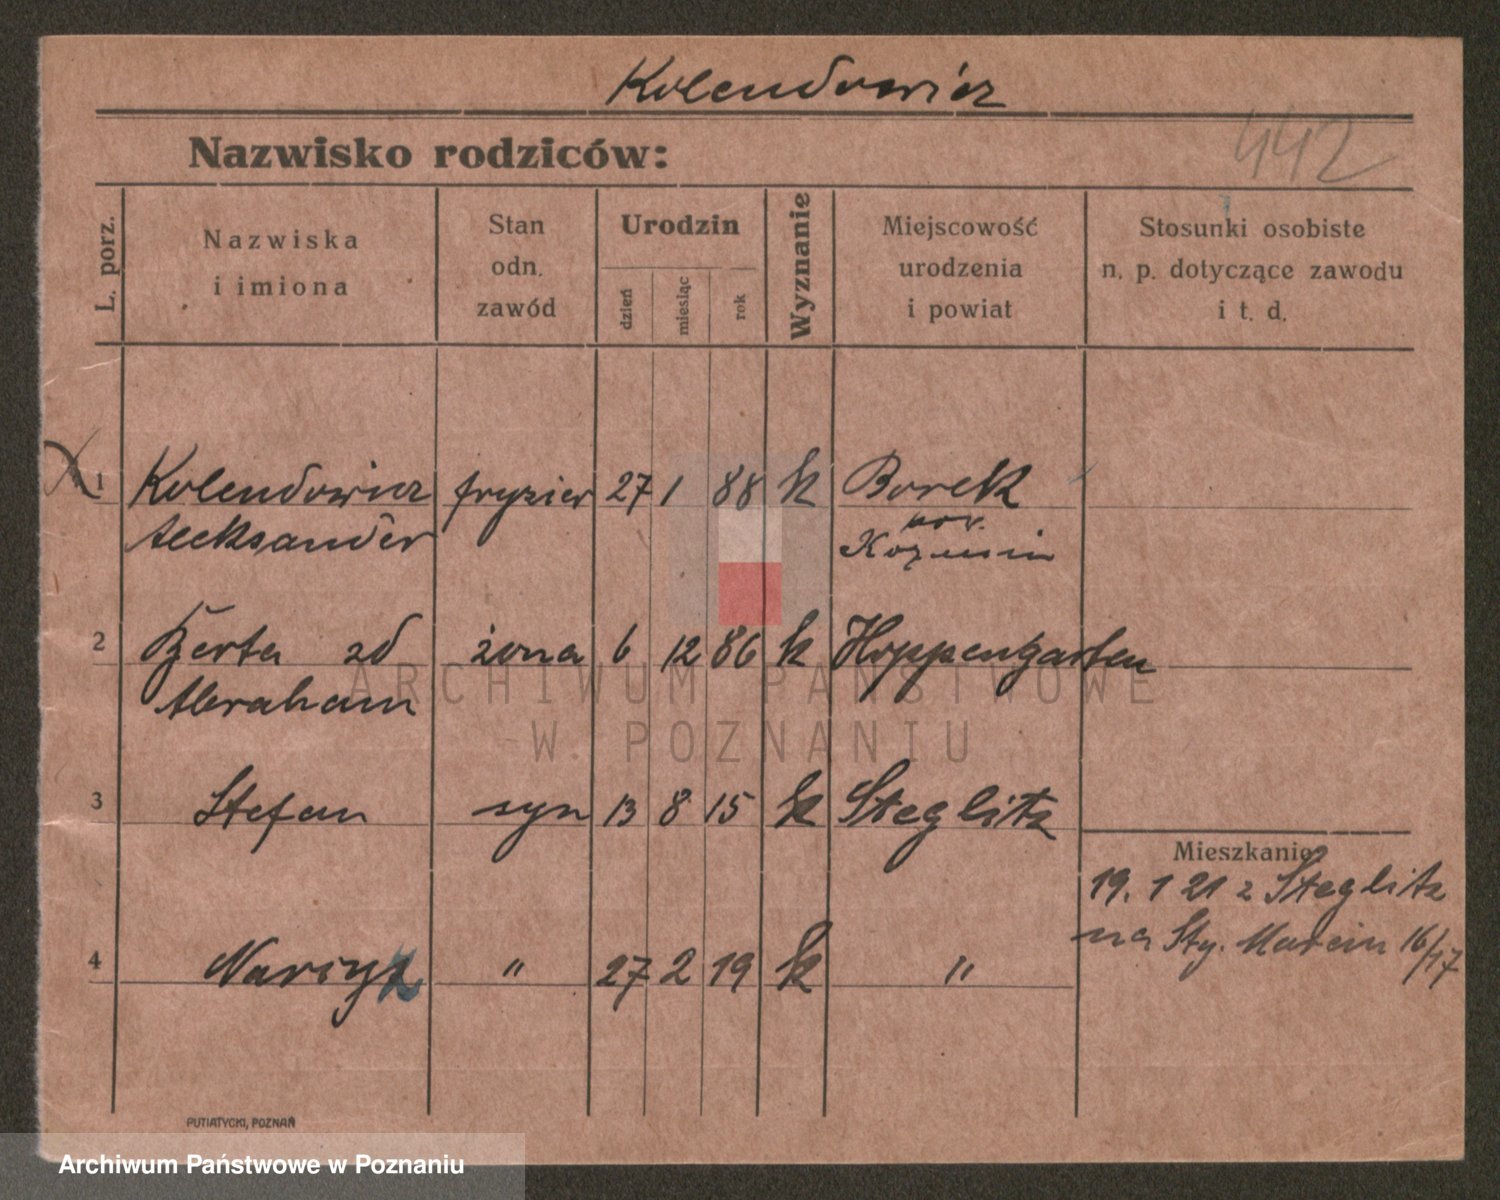 Kolendowicz
442
Nazwisko rodziców:
L. porz.
Nazwiska
i imiona
Stan
odn.
zawód
Urodzin
dzień
miesiąc
rok
Wyznanie
Miejscowość
urodzenia
i powiat
Stosunki osobiste
n. p. dotyczące zawodu
i t. d.
1 Kolendowicz fryzier 27 1 88 k Borek
Aleksander pow. Kozmin
2 Berta zd żona 6 12 86 k Hoppengarten
Abraham
3 Stefan syn 13 8 15 k Steglitz
Mieszkanie
19. 1 21 z Steglitz
na Św. Marcin 16/17
4 Narcyz " 27 2 19 k "
PUTIATYCKI, POZNAŃ
ARCHIWUM PAŃSTWOWE
W POZNANIU
Archiwum Państwowe w Poznaniu